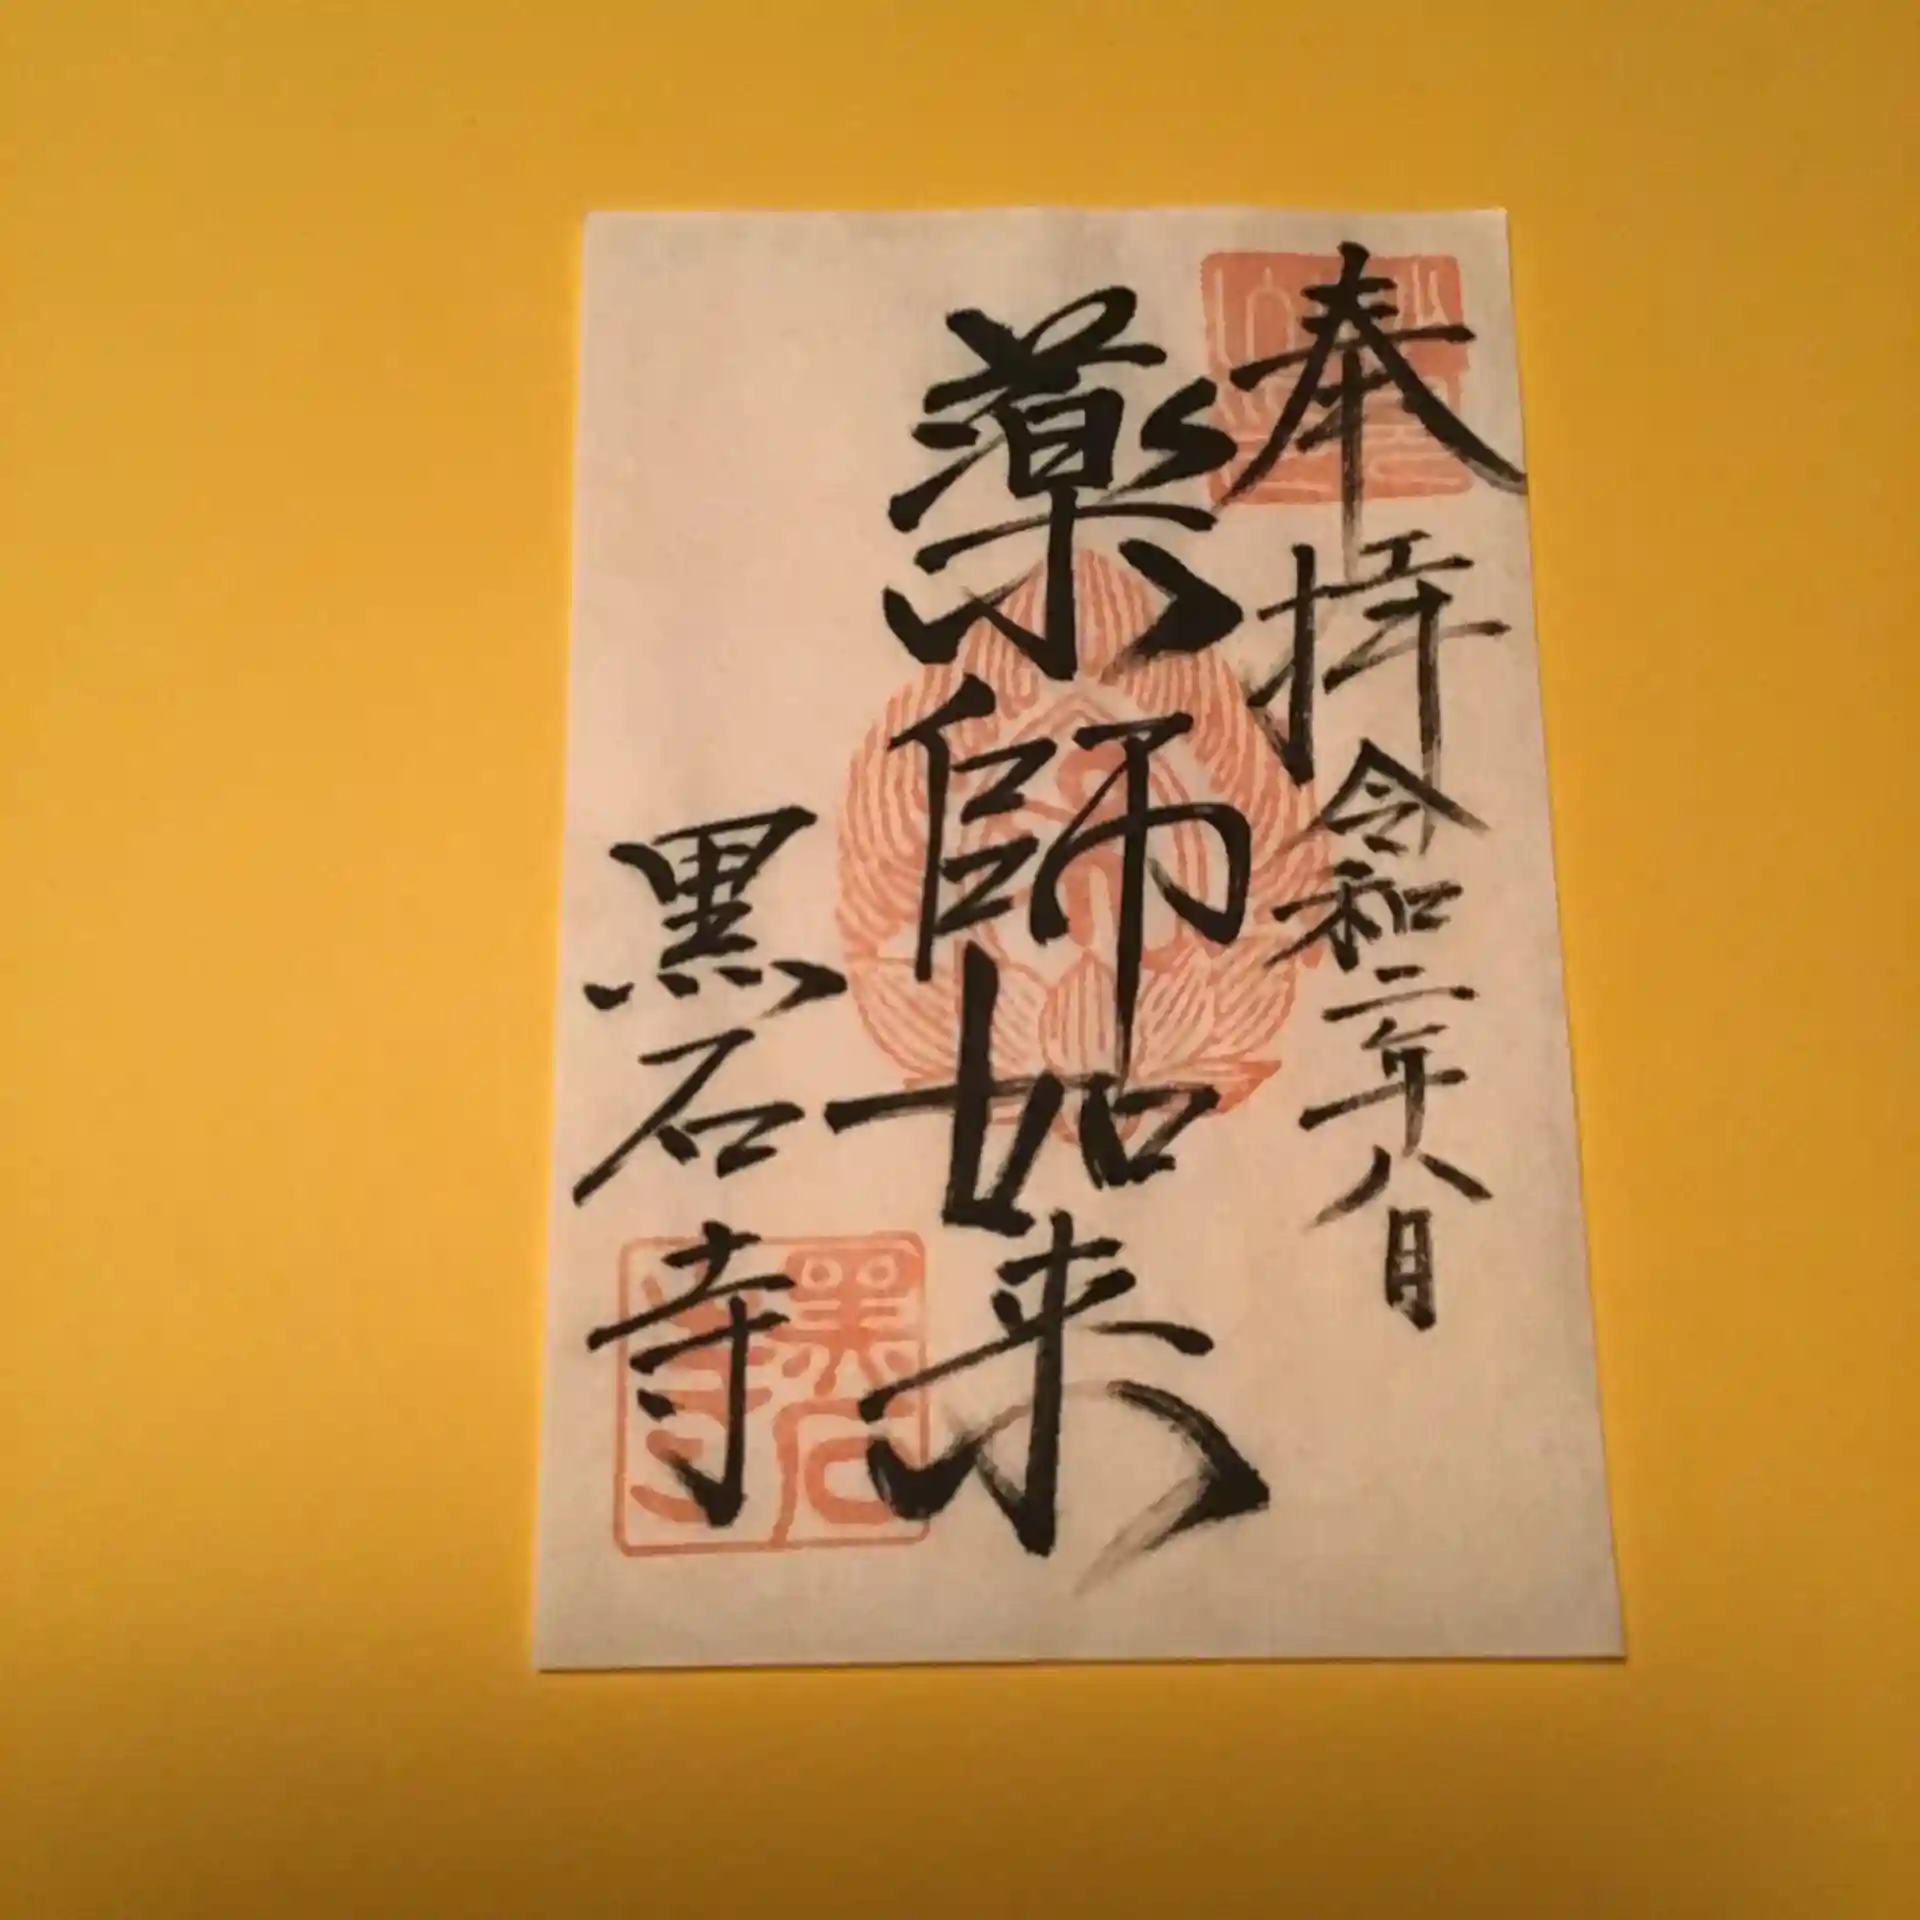 奉拝 令和二年 八日
薬師如来
黒石寺
黒石寺